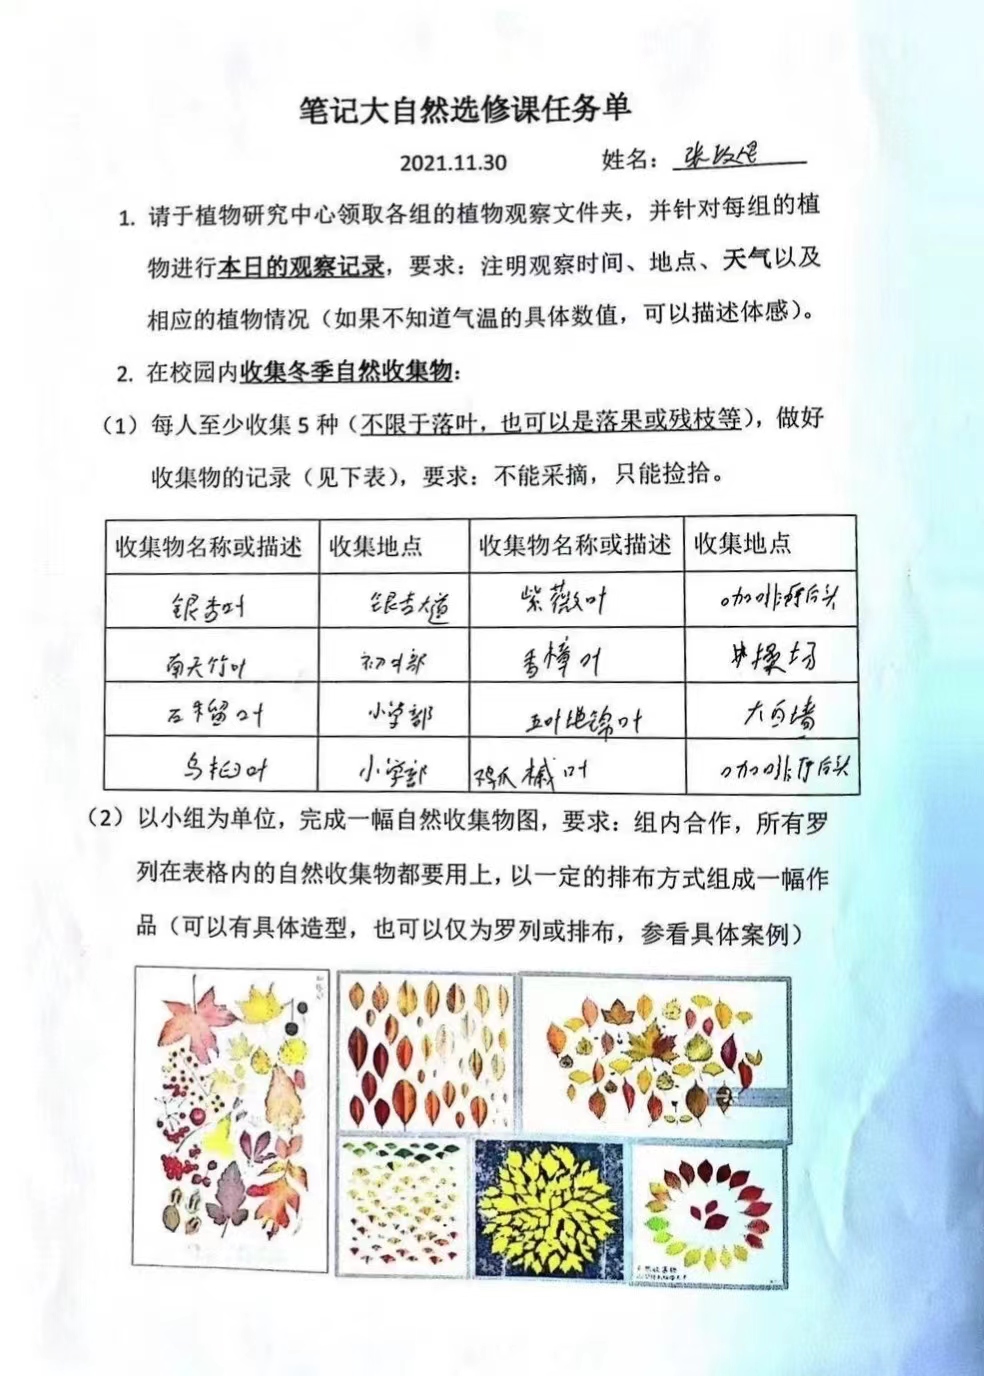 笔记大自然选修课任务单
2021.11.30 姓名：张
1. 请于植物研究中心领取各组的植物观察文件夹，并针对每组的植
物进行本日的观察记录，要求：注明观察时间、地点、天气以及
相应的植物情况（如果不知道气温的具体数值，可以描述体感）。
2. 在校园内收集冬季自然收集物：
（1）每人至少收集 5 种（不限于落叶，也可以是落果或残枝等），做好
收集物的记录（见下表），要求：不能采摘，只能捡拾。
收集物名称或描述 收集地点 收集物名称或描述 收集地点
银杏叶 银杏大道 紫薇叶 咖啡厅后头
南天竹叶 初中部 香樟叶 操场
石榴叶 小学部 五叶地锦叶 大白墙
乌桕叶 小学部 鸡爪槭叶 咖啡厅后头
（2）以小组为单位，完成一幅自然收集物图，要求：组内合作，所有罗
列在表格内的自然收集物都要用上，以一定的排布方式组成一幅作
品（可以有具体造型，也可以仅为罗列或排布，参看具体案例）